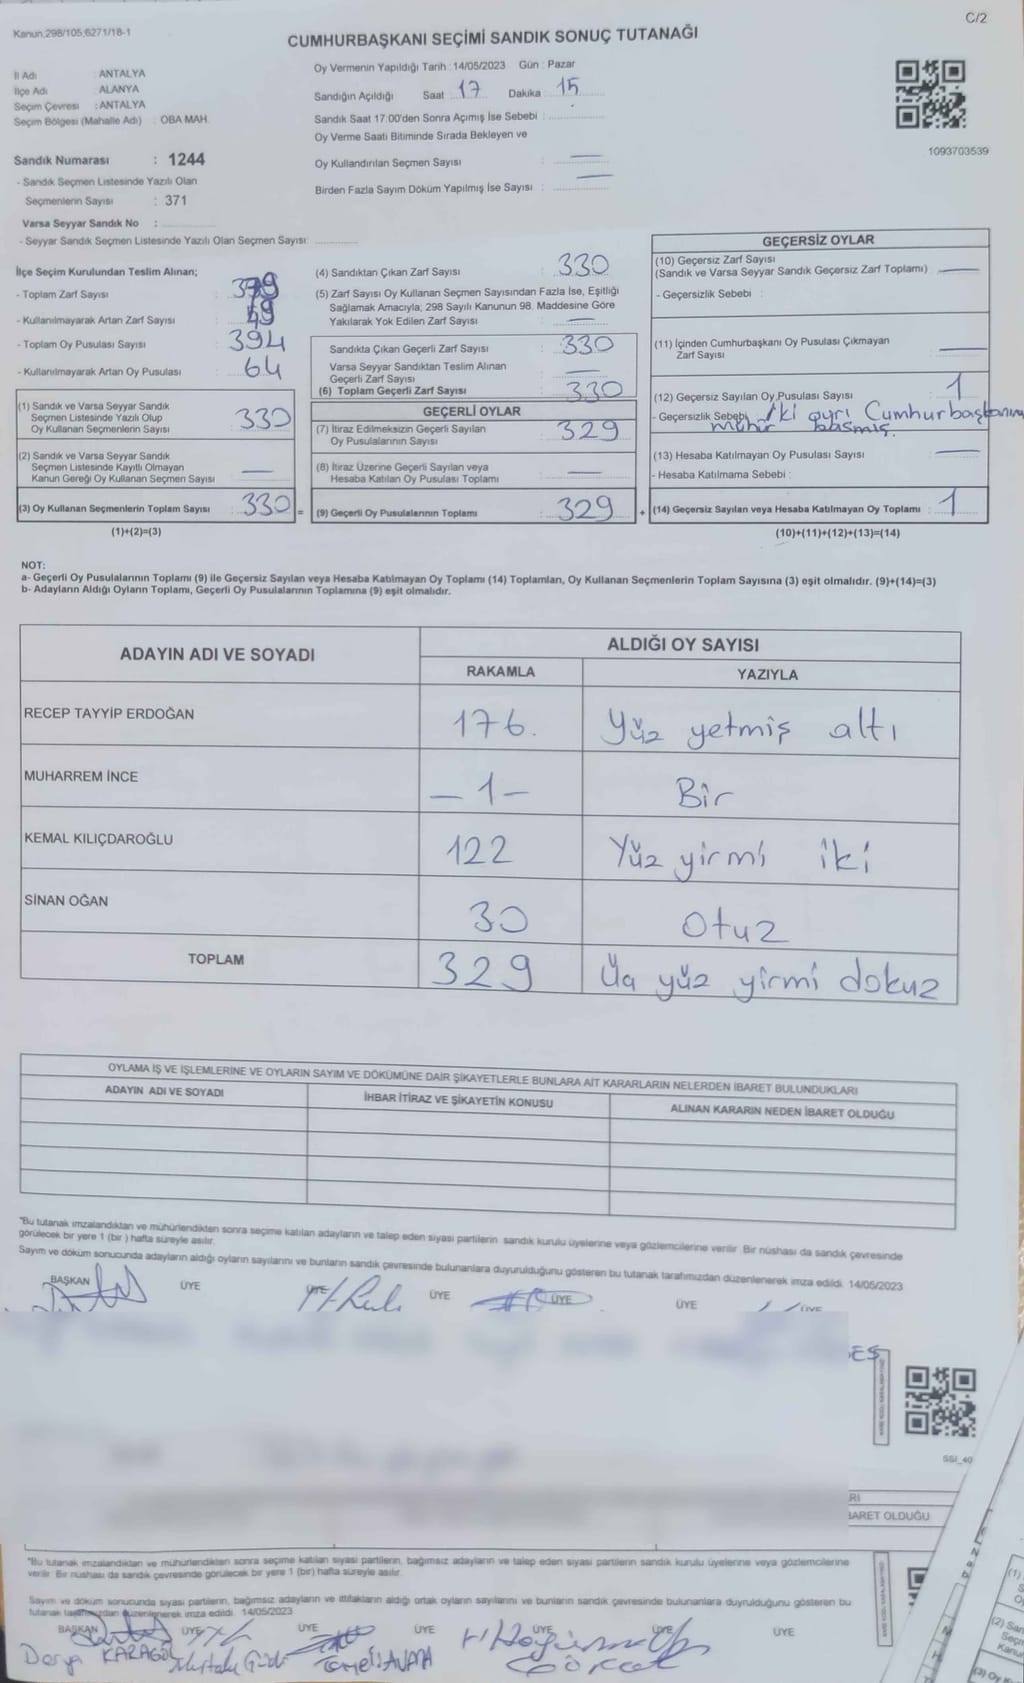 C/2
Kanun;298/105;6271/18-1
CUMHURBAŞKANI SEÇİMİ SANDIK SONUÇ TUTANAĞI
İl Adı : ANTALYA
İlçe Adı : ALANYA
Seçim Çevresi : ANTALYA
Seçim Bölgesi (Mahalle Adı) : OBA MAH.
Sandık Numarası : 1244
- Sandık Seçmen Listesinde Yazılı Olan
Seçmenlerin Sayısı : 371
Varsa Seyyar Sandık No :
- Seyyar Sandık Seçmen Listesinde Yazılı Olan Seçmen Sayısı:
Oy Vermenin Yapıldığı Tarih : 14/05/2023 Gün : Pazar
Sandığın Açıldığı Saat 17 Dakika 15
Sandık Saat 17:00'den Sonra Açımış İse Sebebi :
Oy Verme Saati Bitiminde Sırada Bekleyen ve
Oy Kullandırılan Seçmen Sayısı : —
Birden Fazla Sayım Döküm Yapılmış İse Sayısı : —
1093703539
İlçe Seçim Kurulundan Teslim Alınan;
- Toplam Zarf Sayısı :
- Kullanılmayarak Artan Zarf Sayısı :
- Toplam Oy Pusulası Sayısı : 394
- Kullanılmayarak Artan Oy Pusulası : 64
(1) Sandık ve Varsa Seyyar Sandık
Seçmen Listesinde Yazılı Olup
Oy Kullanan Seçmenlerin Sayısı : 330
(2) Sandık ve Varsa Seyyar Sandık
Seçmen Listesinde Kayıtlı Olmayan
Kanun Gereği Oy Kullanan Seçmen Sayısı : —
(3) Oy Kullanan Seçmenlerin Toplam Sayısı : 330 =
(1)+(2)=(3)
(4) Sandıktan Çıkan Zarf Sayısı : 330
(5) Zarf Sayısı Oy Kullanan Seçmen Sayısından Fazla İse, Eşitliği
Sağlamak Amacıyla; 298 Sayılı Kanunun 98. Maddesine Göre
Yakılarak Yok Edilen Zarf Sayısı : —
Sandıkta Çıkan Geçerli Zarf Sayısı : 330
Varsa Seyyar Sandıktan Teslim Alınan
Geçerli Zarf Sayısı : —
(6) Toplam Geçerli Zarf Sayısı : 330
GEÇERLİ OYLAR
(7) İtiraz Edilmeksizin Geçerli Sayılan
Oy Pusulalarının Sayısı : 329
(8) İtiraz Üzerine Geçerli Sayılan veya
Hesaba Katılan Oy Pusulası Toplamı : —
(9) Geçerli Oy Pusulalarının Toplamı : 329 +
GEÇERSİZ OYLAR
(10) Geçersiz Zarf Sayısı
(Sandık ve Varsa Seyyar Sandık Geçersiz Zarf Toplamı) : —
- Geçersizlik Sebebi :
(11) İçinden Cumhurbaşkanı Oy Pusulası Çıkmayan
Zarf Sayısı : —
(12) Geçersiz Sayılan Oy Pusulası Sayısı : 1
- Geçersizlik Sebebi : İki ayrı Cumhurbaşkanına
mühür basmış.
(13) Hesaba Katılmayan Oy Pusulası Sayısı : —
- Hesaba Katılmama Sebebi :
(14) Geçersiz Sayılan veya Hesaba Katılmayan Oy Toplamı : 1
(10)+(11)+(12)+(13)=(14)
NOT:
a- Geçerli Oy Pusulalarının Toplamı (9) ile Geçersiz Sayılan veya Hesaba Katılmayan Oy Toplamı (14) Toplamları, Oy Kullanan Seçmenlerin Toplam Sayısına (3) eşit olmalıdır. (9)+(14)=(3)
b- Adayların Aldığı Oyların Toplamı, Geçerli Oy Pusulalarının Toplamına (9) eşit olmalıdır.
ADAYIN ADI VE SOYADI ALDIĞI OY SAYISI
RAKAMLA YAZIYLA
RECEP TAYYİP ERDOĞAN 176. Yüz yetmiş altı
MUHARREM İNCE – 1 – Bir
KEMAL KILIÇDAROĞLU 122 Yüz yirmi iki
SİNAN OĞAN 30 Otuz
TOPLAM 329 yüz yirmi dokuz
OYLAMA İŞ VE İŞLEMLERİNE VE OYLARIN SAYIM VE DÖKÜMÜNE DAİR ŞİKAYETLERLE BUNLARA AİT KARARLARIN NELERDEN İBARET BULUNDUKLARI
ADAYIN ADI VE SOYADI İHBAR İTİRAZ VE ŞİKAYETİN KONUSU ALINAN KARARIN NEDEN İBARET OLDUĞU
*Bu tutanak imzalandıktan ve mühürlendikten sonra seçime katılan adayların ve talep eden siyasi partilerin sandık kurulu üyelerine veya gözlemcilerine verilir. Bir nüshası da sandık çevresinde
görülecek bir yere 1 (bir ) hafta süreyle asılır.
Sayım ve döküm sonucunda adayların aldığı oyların sayılarını ve bunların sandık çevresinde bulunanlara duyurulduğunu gösteren bu tutanak tarafımızdan düzenlenerek imza edildi. 14/05/2023
BAŞKAN ÜYE ÜYE ÜYE ÜYE ÜYE ÜYE
SSI_40
BARET OLDUĞU
*Bu tutanak imzalandıktan ve mühürlendikten sonra seçime katılan siyasi partilerin, bağımsız adayların ve talep eden siyasi partilerin sandık kurulu üyelerine veya gözlemcilerine
verilir. Bir nüshası da sandık çevresinde görülecek bir yere 1 (bir) hafta süreyle asılır.
Sayım ve döküm sonucunda siyasi partilerin, bağımsız adayların ve ittifakların aldığı ortak oyların sayılarını ve bunların sandık çevresinde bulunanlara duyurulduğunu gösteren bu
tutanak tarafımızdan düzenlenerek imza edildi. 14/05/2023
BAŞKAN ÜYE ÜYE ÜYE ÜYE ÜYE ÜYE
Derya KARAGÖL